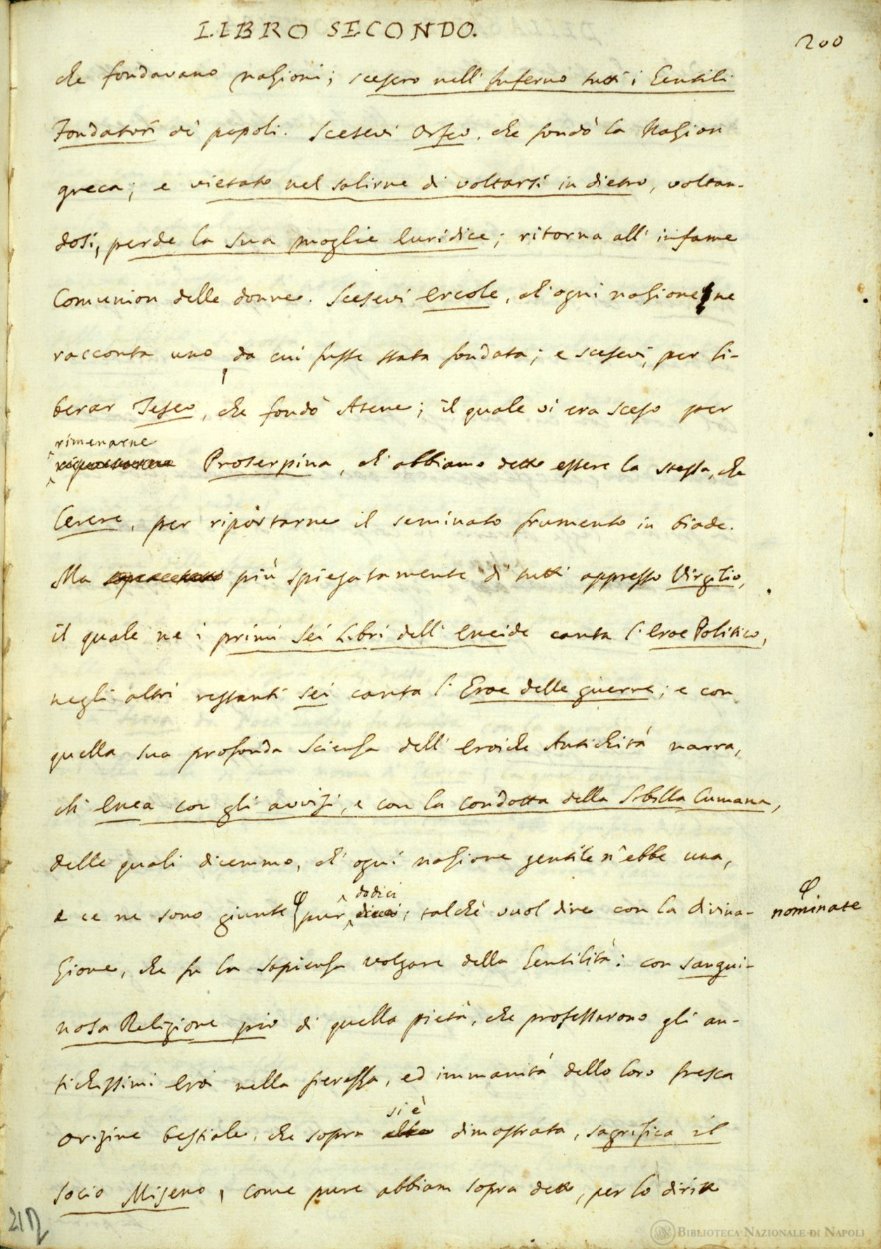 LIBRO SECONDO.
200
che fondavano nazioni; scesero nell' Inferno tutti i Gentili
Fondatori di popoli. Scesevi Orfeo, che fondò la Nazion
greca; e vietato nel salirne di voltarsi in dietro, voltan-
dosi, perde la sua moglie Euridice; ritorna all' infame
Comunion delle donne. Scesevi Ercole, ch' ogni nazione ne
racconta uno, da cui fusse stata fondata; e scesevi, per li-
berar Teseo, che fondò Atene; il quale vi era sceso per
rimenarne
Proserpina, ch' abbiamo detto essere la stessa, che
Cerere, per riportarne il seminato frumento in biade.
Ma più spiegatamente di tutti appresso Virgilio,
il quale ne i primi sei Libri dell' Eneide canta l' Eroe Politico,
negli altri restanti sei canta l' Eroe delle guerre; e con
quella sua profonda Scienza dell' Eroiche Antichità narra,
ch' Enea con gli avvisi, e con la condotta della Sibilla Cumana,
delle quali dicemmo, ch' ogni nazione gentile n' ebbe una,
e ce ne sono giunte φ pur dodici; talchè vuol dire con la divina-
φ nominate
zione, che fu la sapienza volgare della Gentilità: con sangui-
nosa Religione pio di quella pietà, che professarono gli an-
tichissimi Eroi nella fierezza, ed immanità dello loro fresca
origine bestiale, che sopra si è dimostrata, sagrifica il
socio Miseno, come pure abbiam sopra detto, per lo diritto
212
BIBLIOTECA NAZIONALE DI NAPOLI